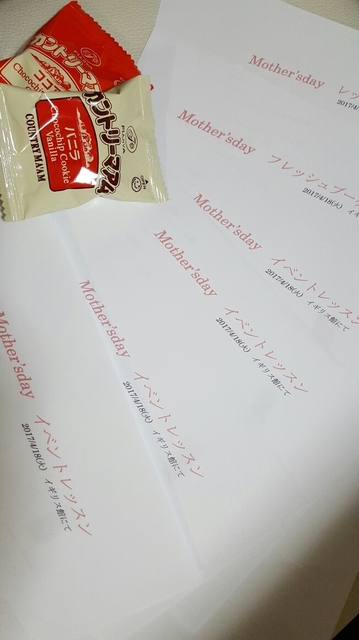 カントリーマアム
Chococh
カントリーマアム
バニラ
Vanilla
COUNTRY MA'AM
Mother'sday レッ
2017/4
Mother'sday フレッシュブーケ
2017/4/18(火) イギ
Mother'sday イベントレッスン
2017/4/18(火) イギリス館にて
Mother'sday イベントレッスン
2017/4/18(火) イギリス館にて
Mother'sday イベントレッスン
2017/4/18(火) イギリス館にて
Mother'sday イベントレッスン
2017/4/18(火) イギリス館にて